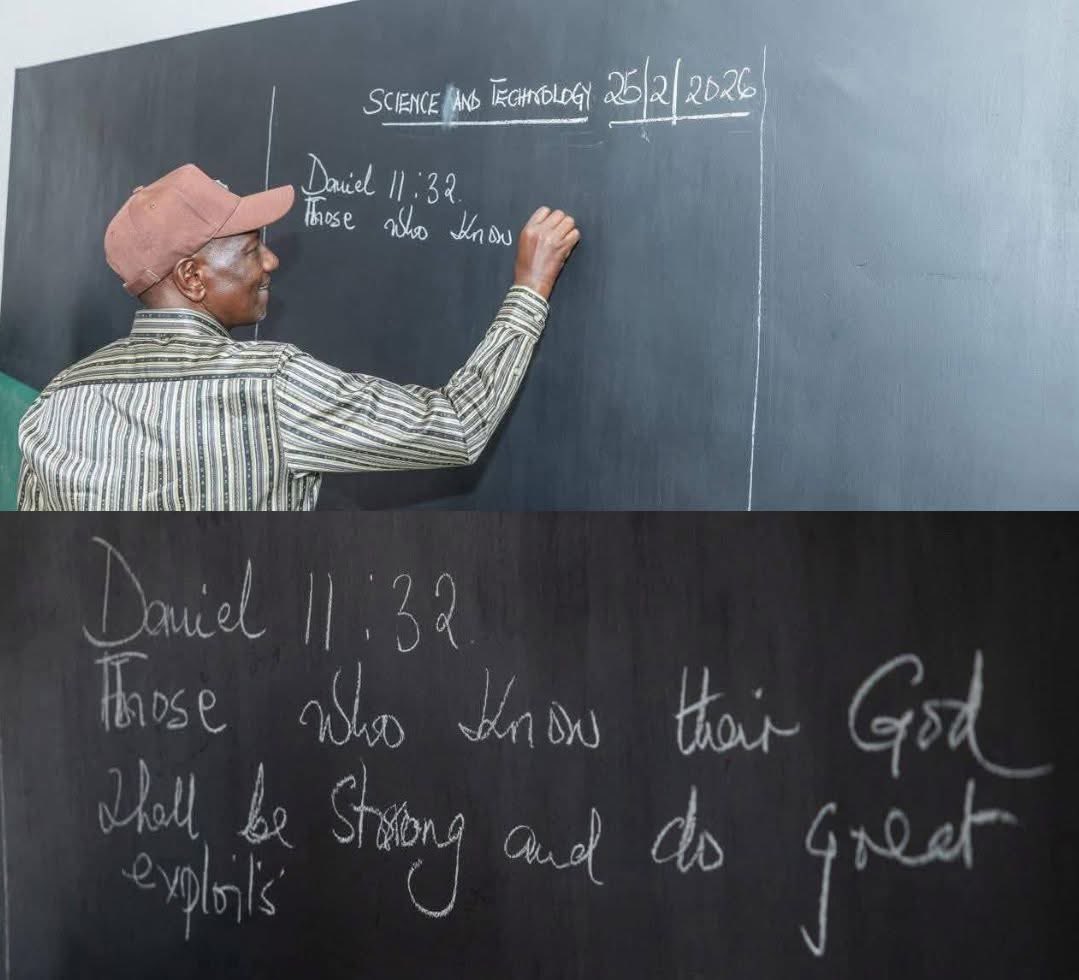 SCIENCE AND TECHNOLOGY 25/2/2026
Daniel 11:32.
Those who know
Daniel 11:32.
Those who know their God
shall be strong and do great
exploits